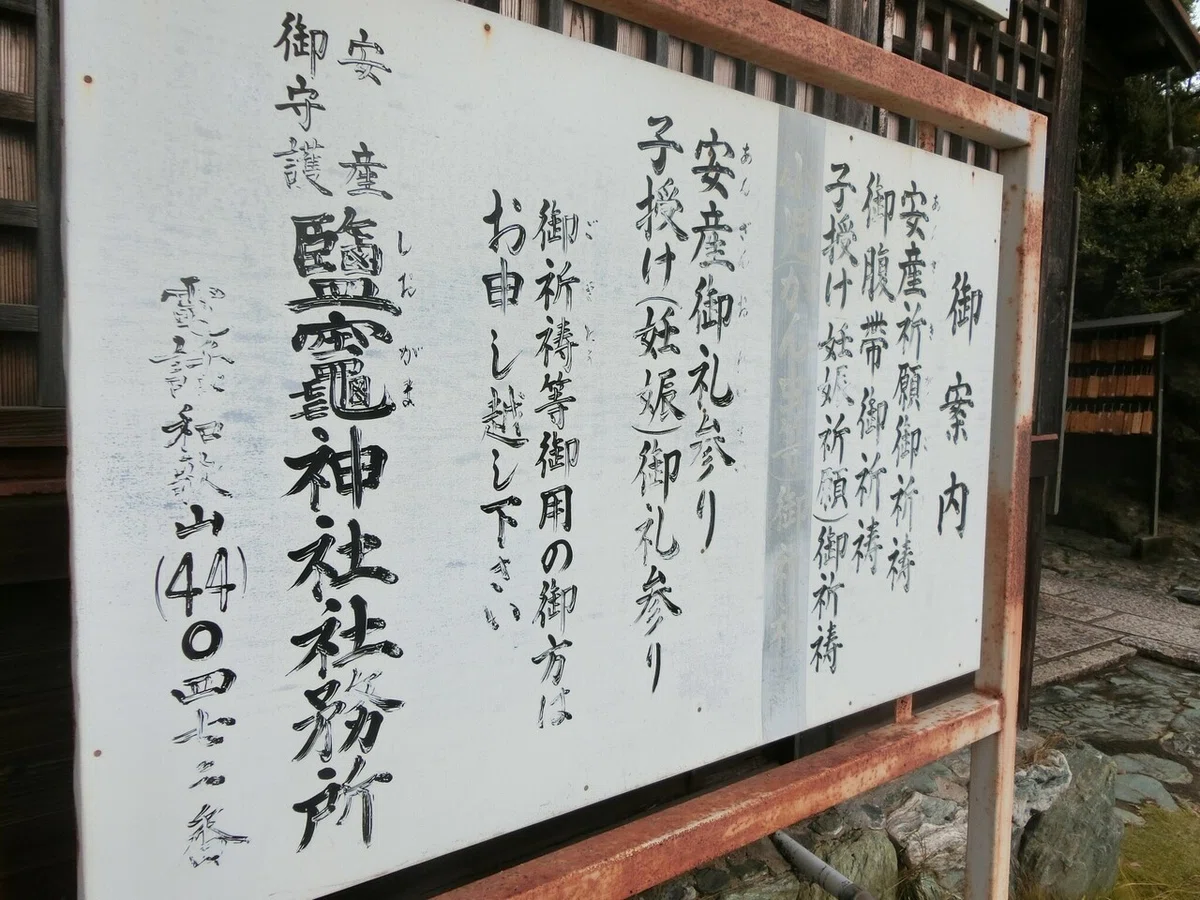 御案内
安産祈願御祈祷
御腹帯御祈祷
子授け(妊娠祈願)御祈祷
安産御礼参り
子授け(妊娠)御礼参り
御祈祷等御用の御方は
お申し越し下さい
安産
御守護
鹽竈神社社務所
電話和歌山(44)〇四七二番